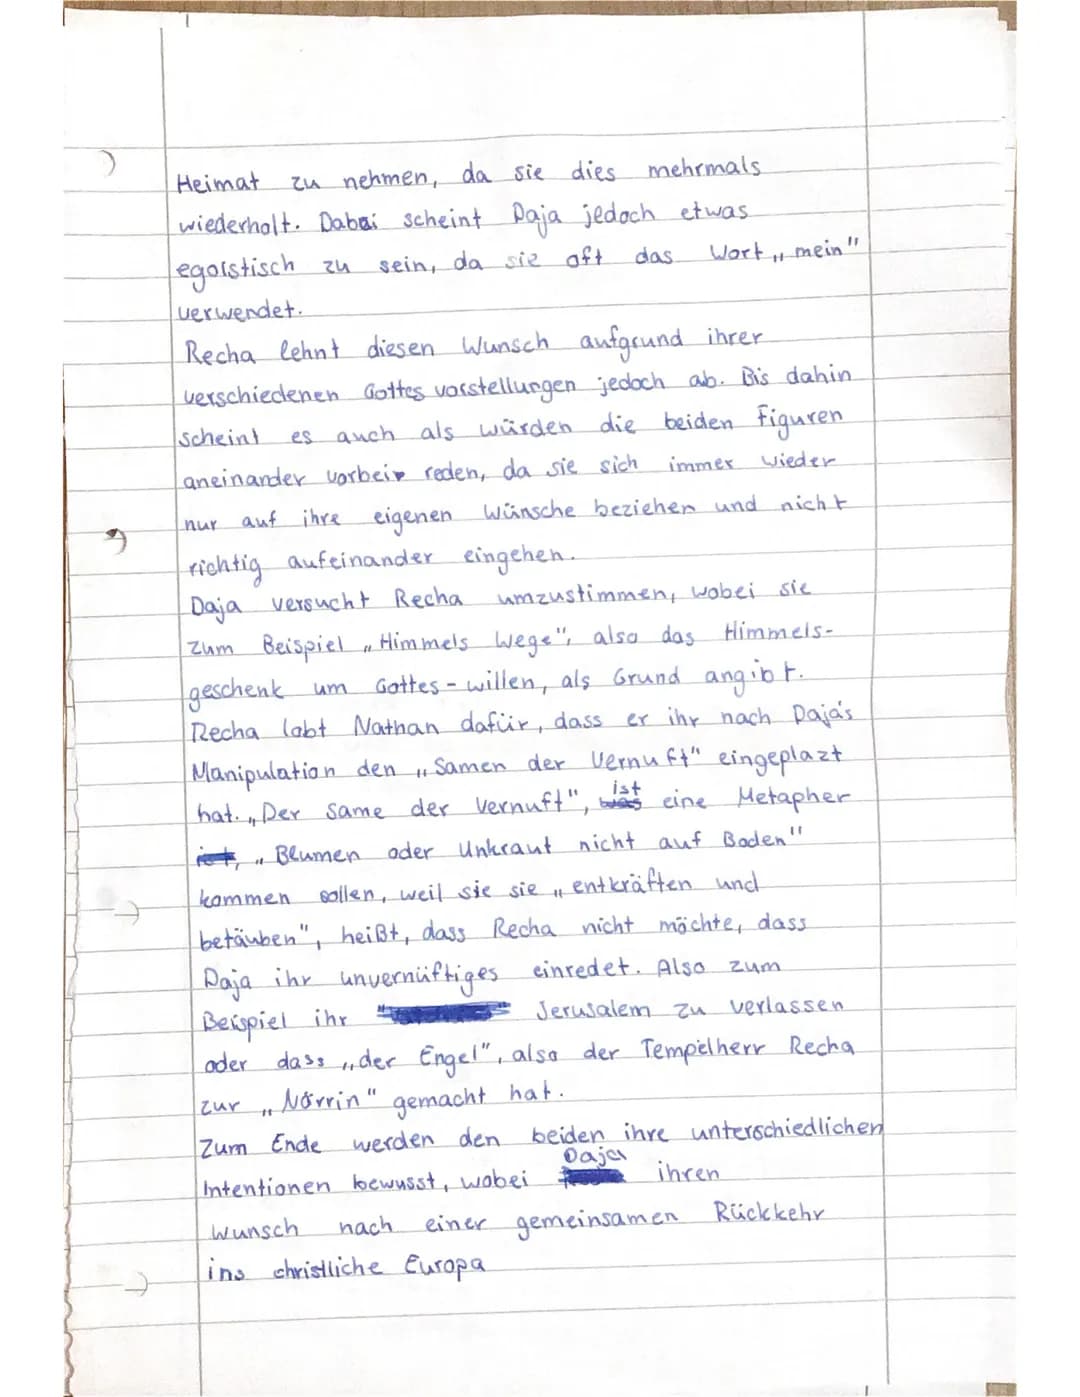 Heimat zu nehmen, da sie dies mehrmals
wiederholt. Dabei scheint Daja jedoch etwas
egoistisch zu sein, da sie oft das Wort „mein"
verwendet.
Recha lehnt diesen Wunsch aufgrund ihrer
verschiedenen Gottes vorstellungen jedoch ab. Bis dahin
scheint es auch als würden die beiden Figuren
aneinander vorbei reden, da sie sich immer wieder
nur auf ihre eigenen Wünsche beziehen und nicht
richtig aufeinander eingehen.
Daja versucht Recha umzustimmen, wobei sie
zum Beispiel „Himmels Wege", also das Himmels-
geschenk um Gottes-willen, als Grund angibt.
Recha lobt Nathan dafür, dass er ihr nach Daja's
Manipulation den „Samen der Vernuft" eingeplazt
hat. „Der Same der Vernuft", ist eine Metapher
„Blumen oder Unkraut nicht auf Boden"
kommen sollen, weil sie sie „entkräften und
betäuben", heißt, dass Recha nicht möchte, dass
Daja ihr unvernüftiges einredet. Also zum
Beispiel ihr Jerusalem zu verlassen
oder dass „der Engel", also der Tempelherr Recha
zur „Närrin" gemacht hat.
Zum Ende werden den beiden ihre unterschiedlichen
Intentionen bewusst, wobei Daja ihren
Wunsch nach einer gemeinsamen Rückkehr
ins christliche Europa